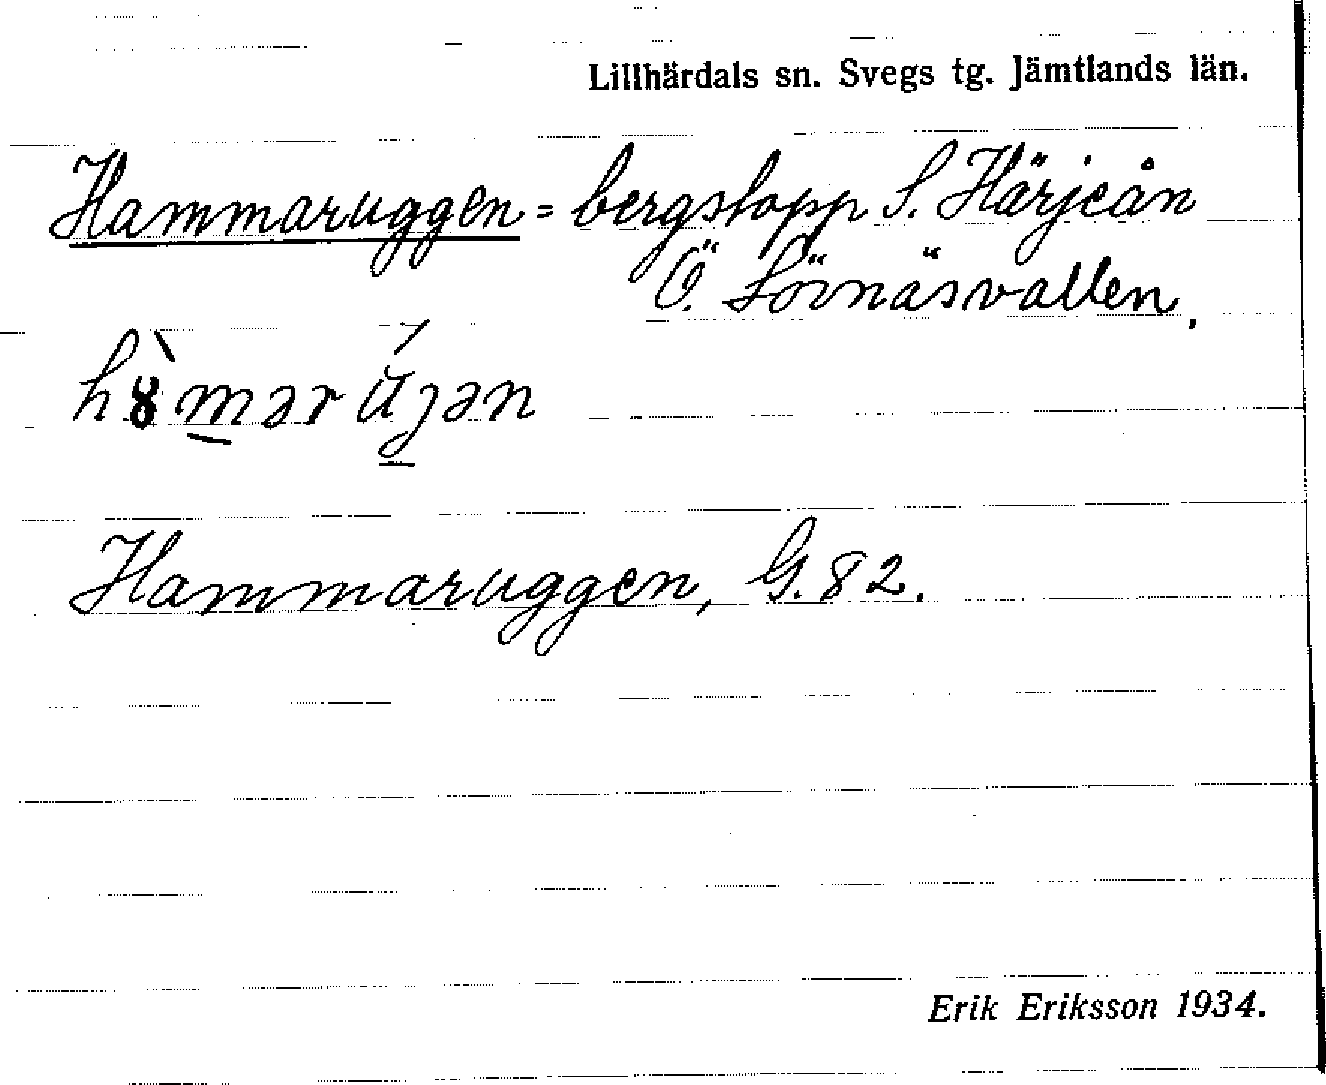 Lillhärdals sn. Svegs tg. Jämtlands län.
Hammaruggen = bergstopp S. Härjeån
Ö. Lövnäsvallen.
Hammaruggen, G. 82.
Erik Eriksson 1934.